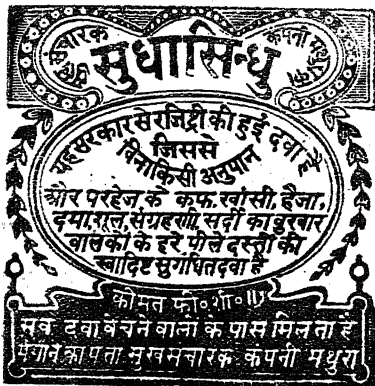 सुख संचारक कंपनी मथुरा का
सुधासिन्धु
यह सरकार से रजिष्ट्री की हुई दवा है
जिससे
विना किसी अनुपान
और परहेज के कफ, खांसी, हैजा,
दमा, शूल, संग्रहणी, सर्दी का बुखार
बालकों के हरे पीले दस्तों की
स्वादिष्ट सुगंधित दवा है
कीमत फी॰ शी॰ ॥)
सब दवा बेचने वालों के पास मिलता है
मंगाने का पता सुखसंचारक कंपनी मथुरा